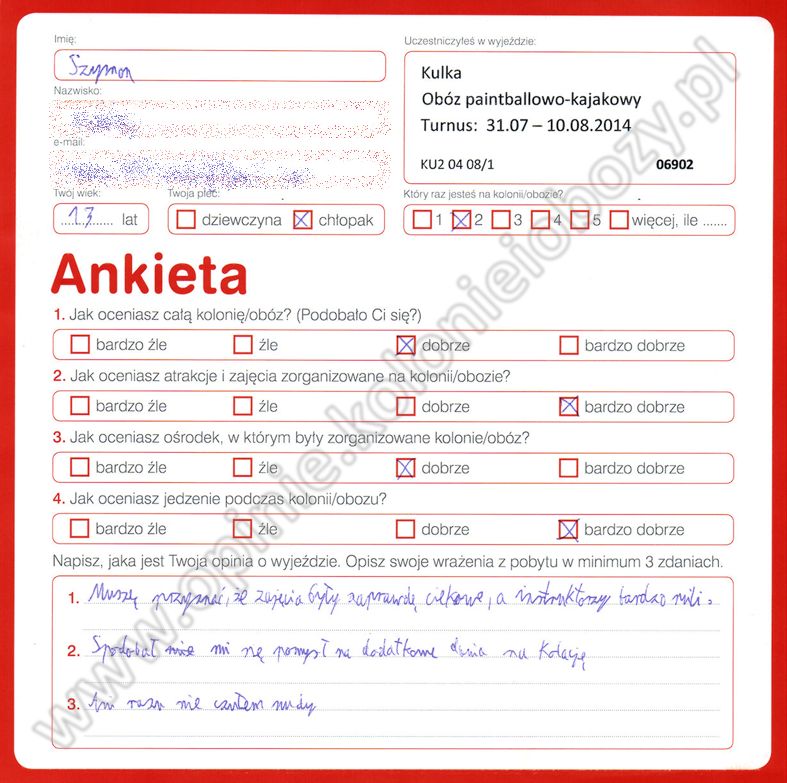 Imię:
Szymon
Nazwisko:
e-mail:
Twój wiek:
13 lat
Twoja płeć:
dziewczyna chłopak
Uczestniczyłeś w wyjeździe:
Kulka
Obóz paintballowo-kajakowy
Turnus: 31.07 – 10.08.2014
KU2 04 08/1 06902
Który raz jesteś na kolonii/obozie?
1 2 3 4 5 więcej, ile .......
Ankieta
1. Jak oceniasz całą kolonię/obóz? (Podobało Ci się?)
bardzo źle źle dobrze bardzo dobrze
2. Jak oceniasz atrakcje i zajęcia zorganizowane na kolonii/obozie?
bardzo źle źle dobrze bardzo dobrze
3. Jak oceniasz ośrodek, w którym były zorganizowane kolonie/obóz?
bardzo źle źle dobrze bardzo dobrze
4. Jak oceniasz jedzenie podczas kolonii/obozu?
bardzo źle źle dobrze bardzo dobrze
Napisz, jaka jest Twoja opinia o wyjeździe. Opisz swoje wrażenia z pobytu w minimum 3 zdaniach.
1. Muszę przyznać, że zajęcia były naprawdę ciekawe, a instruktorzy bardzo mili.
2. Spodobał mi się pomysł na dodatkowe dania na kolację
3. Ani razu nie czułem nudy
www.opinie.kolonieiobozy.pl